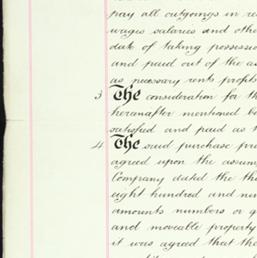 pay all outgoings in re
wages salaries and othe
date of taking possessio
and paid out of the as
as necessary rents profits
3 The consideration for th
hereinafter mentioned be
satisfied and paid as t
4 The said purchase pri
agreed upon the assum
Company dated the th
eight hundred and nin
amounts numbers or q
and moveable property
it was agreed that the